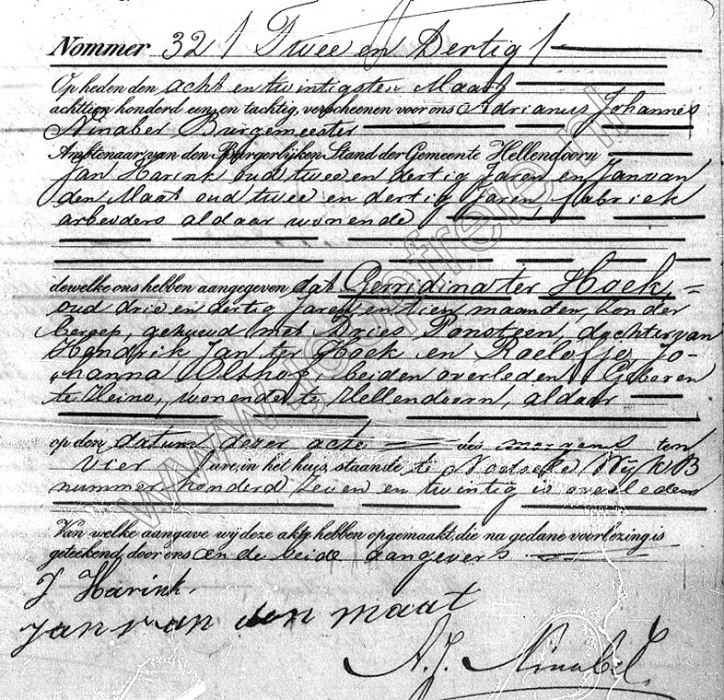 Nommer 32 / Twee en Dertig /
Op heden den acht en twintigsten Maart
achttien honderd een en tachtig, verscheenen voor ons Adrianus Johannes
Ninaber Burgemeester
Ambtenaar van den Burgerlijken Stand der Gemeente Hellendoorn
Jan Harink oud twee en dertig Jaren en Jan van
den Maat oud twee en dertig Jaren fabriek
arbeiders aldaar wonende
dewelke ons hebben aangegeven dat Gerridina ter Hoek,
oud drie en dertig Jaren en tien maanden, zonder
beroep, gehuwd met Dries Ponsteen, dochter van
Hendrik Jan ter Hoek en Roelofje Jo-
hanna Olthof, beiden overleden, Geboren
te Heino, wonende te Hellendoorn, aldaar
op den datum dezer acte des morgens ten
vier ure, in het huis, staande te Noetsele Wijk B
nummer honderd zeven en twintig is overleden
Van welke aangave wij deze akte hebben opgemaakt, die na gedane voorlezing is
geteekend door ons en de beide aangevers
J Harink.
Jan van den maat
A. J. Ninaber
www.voorfreters.nl